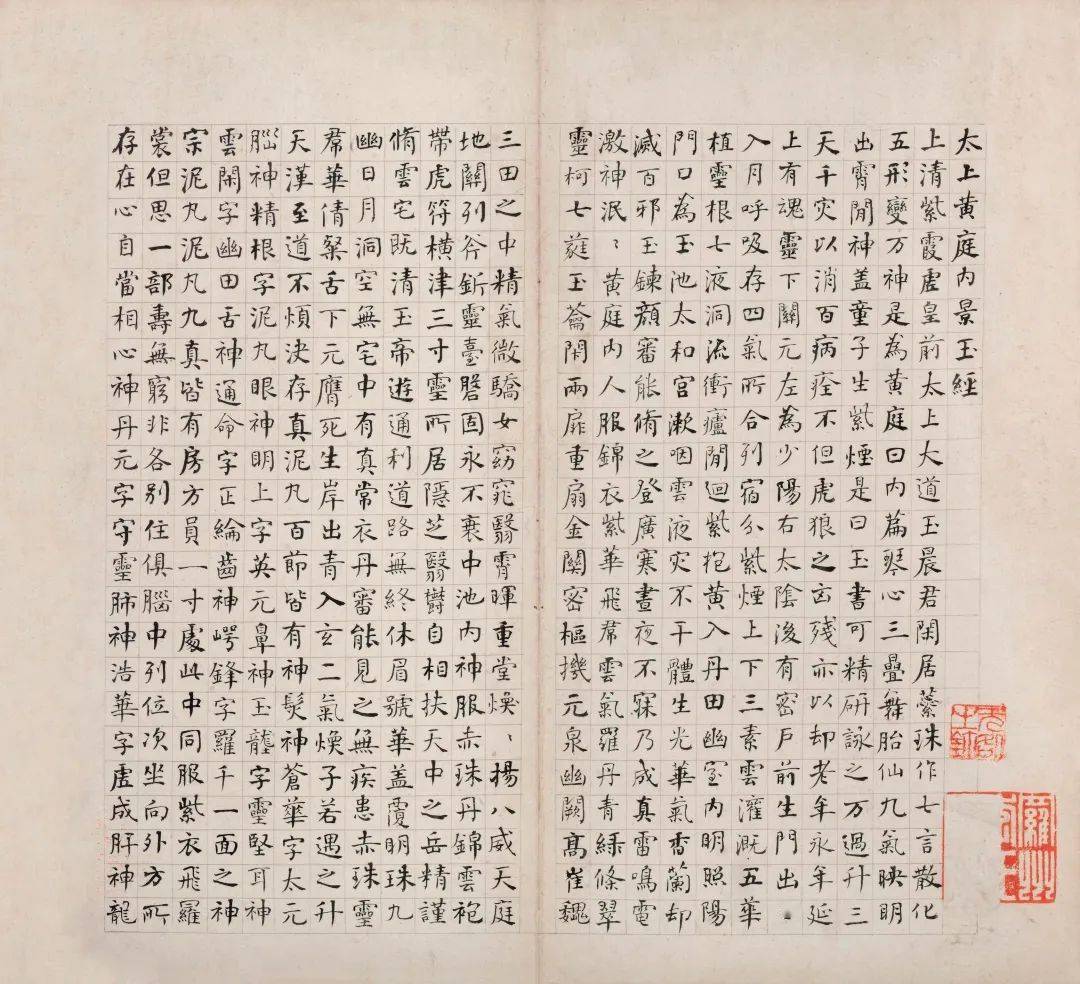 太上黄庭内景玉經
上清紫霞虛皇前太上大道玉晨君閑居蘂珠作七言散化
五形變万神是為黄庭曰内篇琴心三疊舞胎仙九氣映明
出霄閒神盖童子生紫煙是曰玉書可精研詠之万過升三
天千灾以消百病痊不但虎狼之凶殘亦以却老年永年延
上有魂靈下關元左為少陽右太陰後有密戶前生門出
入月呼吸存四氣所合列宿分紫煙上下三素雲灌溉五華
植靈根七液洞流衝廬閒迴紫抱黄入丹田幽室内明照陽
門口為玉池太和宮漱咽雲液灾不干體生光華氣香蘭却
滅百邪玉鍊顏審能脩之登廣寒晝夜不寐乃成真雷鳴電
激神泯〻黄庭内人服錦衣紫華飛帬雲氣羅丹青綠條翠
靈柯七蕤玉籥閑兩扉重扇金關密樞機元泉幽闕高崔巍
三田之中精氣微驕女窈窕翳霄暉重堂煥〻揚八威天庭
地關列斧釿靈臺盤固永不衰中池内神服赤珠丹錦雲袍
帶虎符横津三寸靈所居隱芝翳鬱自相扶天中之岳精謹
脩雲宅既清玉帝遊通利道路無終休眉號華盖覆明珠九
幽日月洞空無宅中有真常衣丹審能見之無疾患赤珠靈
帬華倩粲舌下元膺死生岸出青入玄二氣煥子若遇之升
天漢至道不煩決存真泥丸百節皆有神髮神蒼華字太元
腦神精根字泥丸眼神明上字英元鼻神玉壟字靈堅耳神
雲閑字幽田舌神通命字正綸齒神崿鋒字羅千一面之神
宗泥丸泥丸九真皆有房方員一寸處此中同服紫衣飛羅
裳但思一部壽無窮非各別住俱腦中列位次坐向外方所
存在心自當相心神丹元字守靈肺神浩華字虛成肝神龍